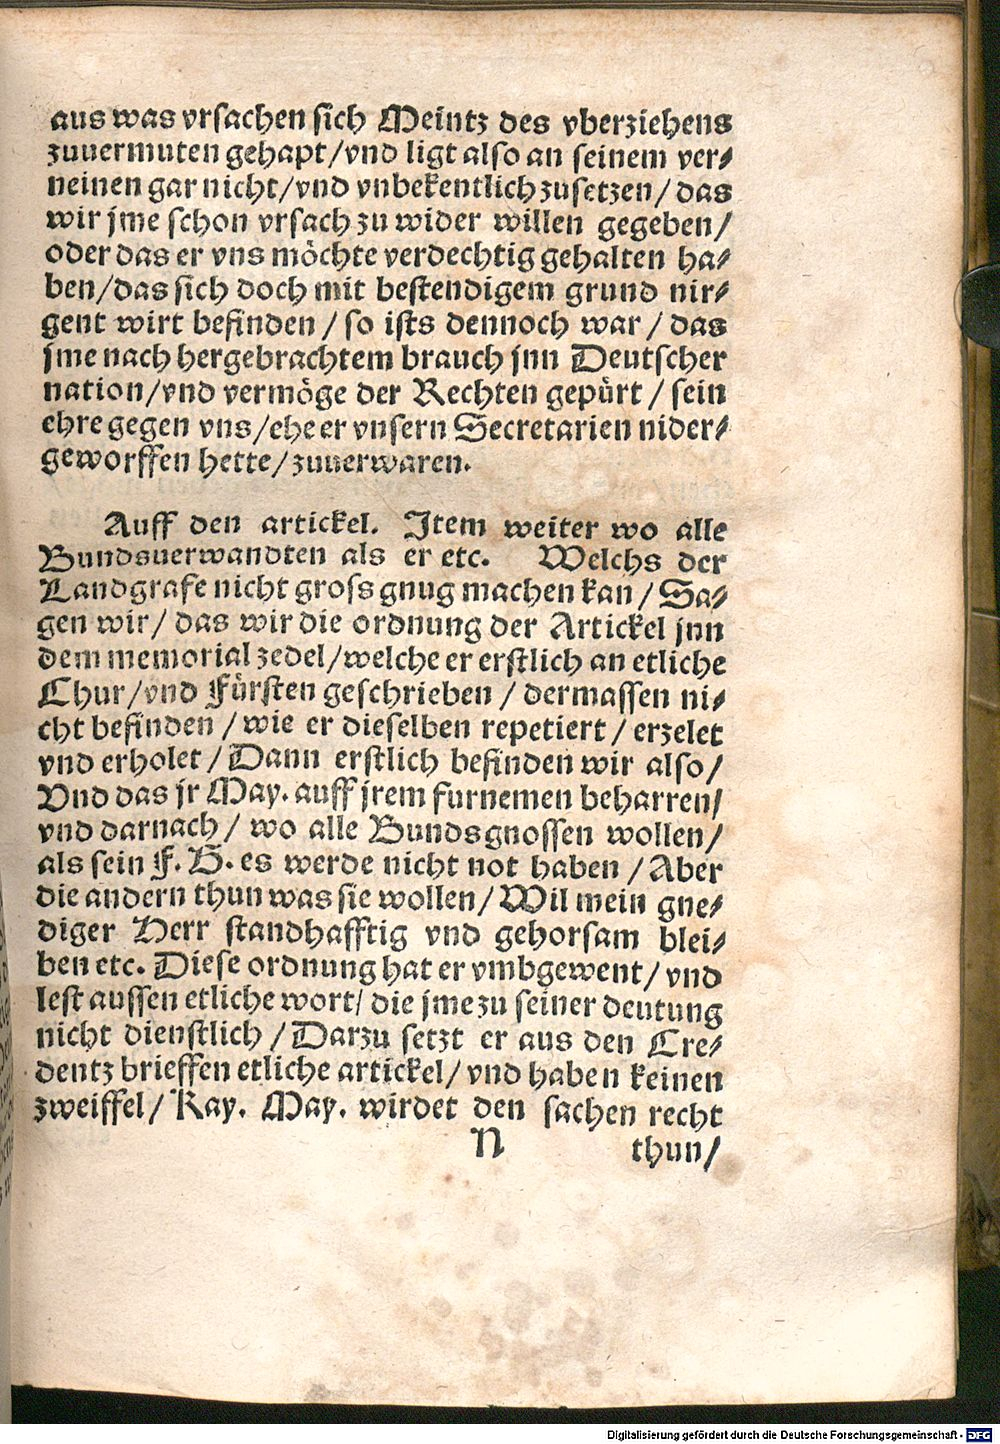 aus was vrsachen sich Meintz des vberziehens
zuuermuten gehapt/vnd ligt also an seinem ver⸗
neinen gar nicht/vnd vnbekentlich zusetzen/das
wir jme schon vrsach zu wider willen gegeben/
oder das er vns möchte verdechtig gehalten ha⸗
ben/das sich doch mit bestendigem grund nir⸗
gent wirt befinden/so ists dennoch war/das
jme nach hergebrachtem brauch jnn Deutscher
nation/vnd vermöge der Rechten gepürt/sein
ehre gegen vns/ehe er vnsern Secretarien nider⸗
geworffen hette/zuuerwaren.
Auff den artickel. Item weiter wo alle
Bundsuerwandten als er etc. Welchs der
Landgrafe nicht gross gnug machen kan/Sa⸗
gen wir/das wir die ordnung der Artickel jnn
dem memorial zedel/welche er erstlich an etliche
Chur/vnd Fürsten geschrieben/dermassen ni⸗
cht befinden/wie er dieselben repetiert/erzelet
vnd erholet/Dann erstlich befinden wir also/
Vnd das jr May. auff jrem furnemen beharren/
vnd darnach/wo alle Bundsgnossen wollen/
als sein F. G. es werde nicht not haben/Aber
die andern thun was sie wollen/Wil mein gne⸗
diger Herr standhafftig vnd gehorsam blei⸗
ben etc. Diese ordnung hat er vmbgewent/vnd
lest aussen etliche wort/die jme zu seiner deutung
nicht dienstlich/Darzu setzt er aus den Cre⸗
dentz brieffen etliche artickel/vnd haben keinen
zweiffel/Kay. May. wirdet den sachen recht
N thun/
Digitalisierung gefördert durch die Deutsche Forschungsgemeinschaft - DFG